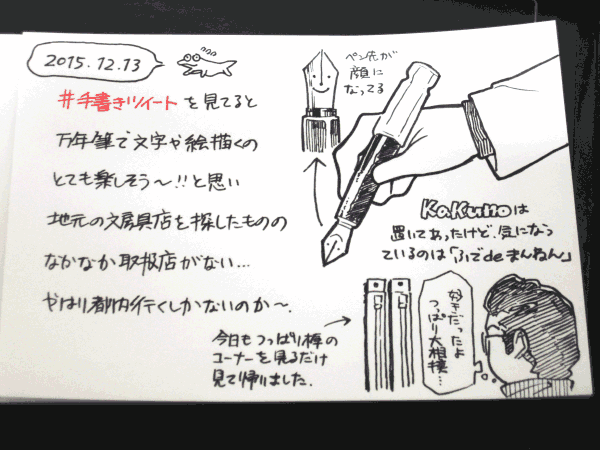 2015.12.13
#手書きツイートを見てると
万年筆で文字や絵描くの
とても楽しそう〜!!と思い
地元の文房具店を探したものの
なかなか取扱店がない…
やはり都内行くしかないのか〜.
ペン先が
顔に
なってる
KaKunoは
置いてあったけど、気になっ
ているのは「ふでdeまんねん」
今日もつっぱり棒の
コーナーを見るだけ
見て帰りました.
好きだったよ
つっぱり大相撲…